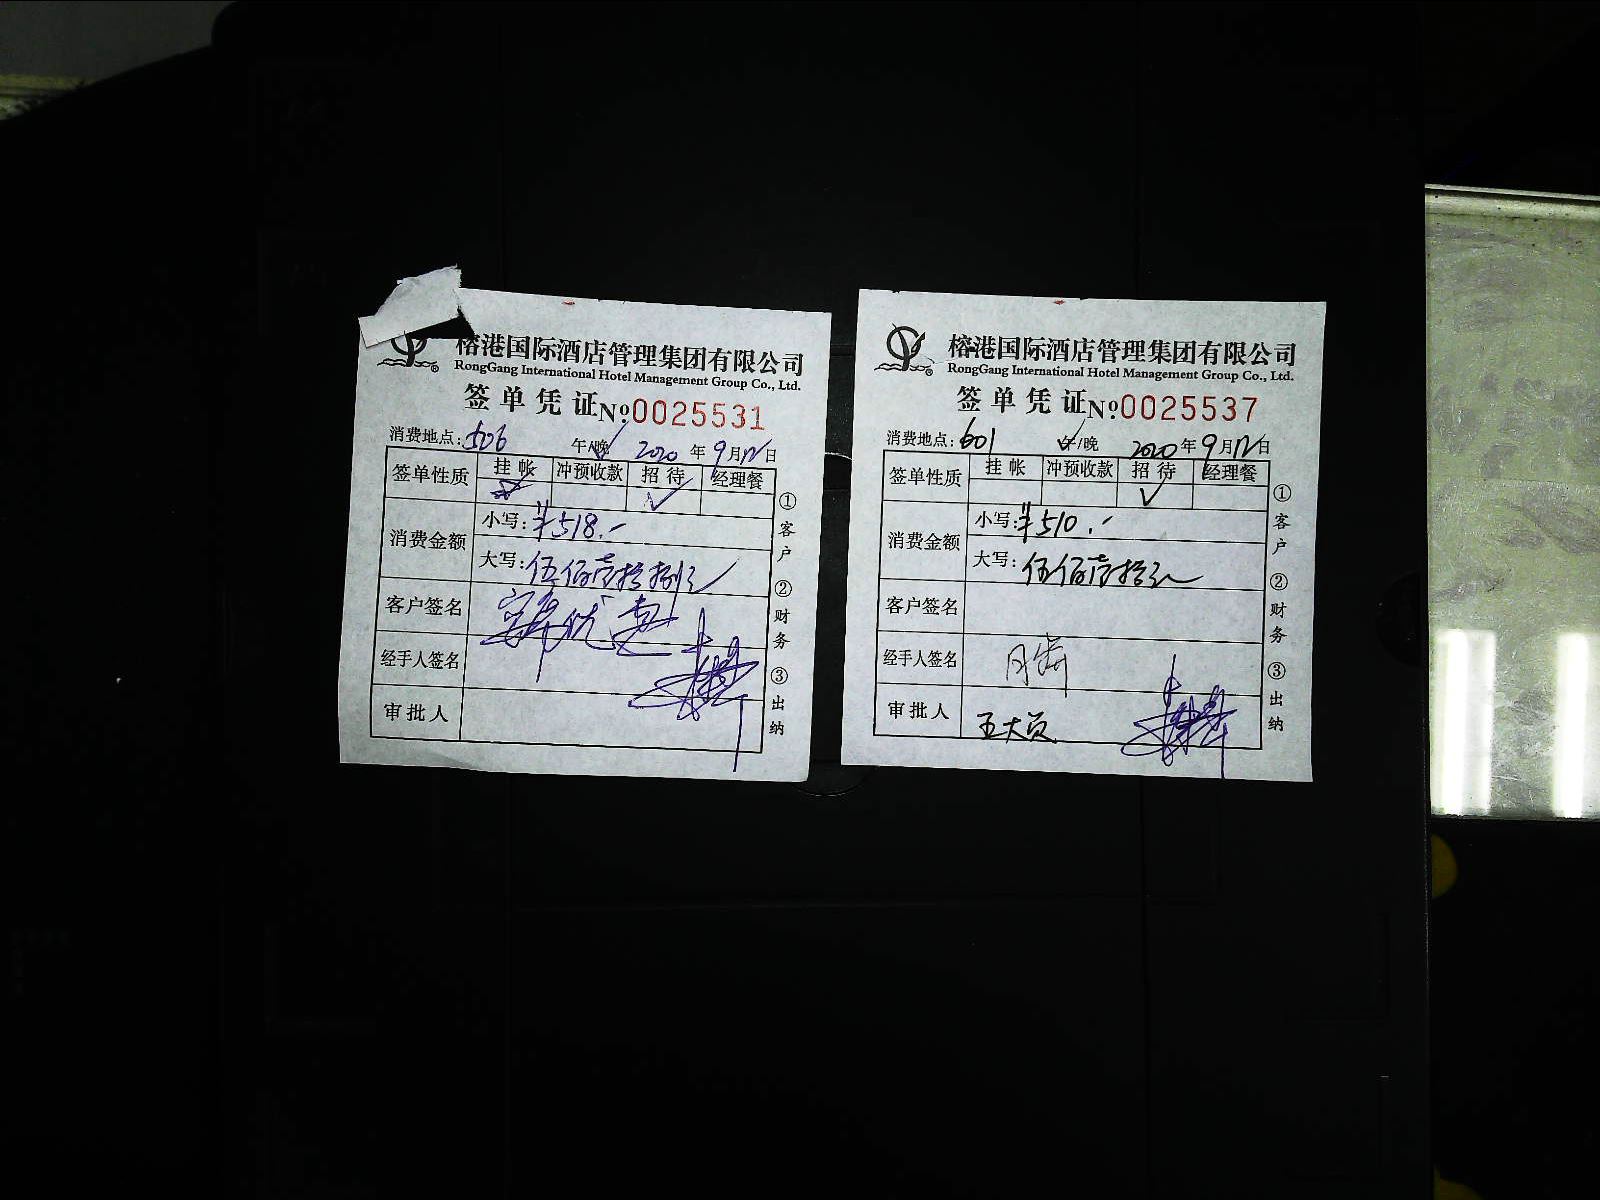 榕港国际酒店管理集团有限公司
RongGang International Hotel Management Group Co., Ltd.
签单凭证 №0025531
消费地点: 506 午/晚 2020年9月12日
签单性质 挂帐 冲预收款 招待 经理餐
消费金额
小写: ¥518.-
大写: 伍佰壹拾捌元
客户签名
经手人签名
审批人
①客户 ②财务 ③出纳
榕港国际酒店管理集团有限公司
RongGang International Hotel Management Group Co., Ltd.
签单凭证 №0025537
消费地点: 601 午/晚 2020年9月12日
签单性质 挂帐 冲预收款 招待 经理餐
消费金额
小写: ¥510.-
大写: 伍佰壹拾元
客户签名
经手人签名
审批人
①客户 ②财务 ③出纳